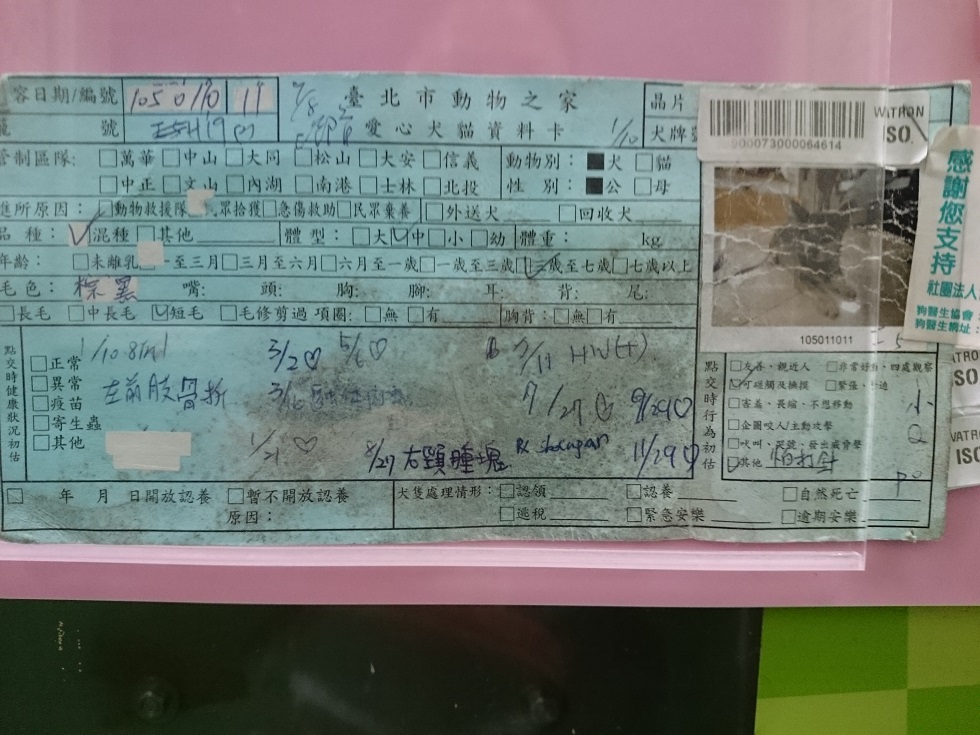 容日期/編號 105 0110 11 臺北市動物之家 晶片
號 愛心犬貓資料卡 1/10 犬牌號
管制區隊: □萬華□中山□大同□松山□大安□信義 動物別:■犬□貓
□中正□文山□內湖□南港□士林□北投 性 別:■公□母
進所原因:□動物救援隊 民眾拾獲□急傷救助□民眾棄養 □外送犬 □回收犬
品種:☑混種□其他 體型:□大☑中□小□幼 體重: kg
年齡:□未離乳 一至三月□三月至六月□六月至一歲□一歲至三歲☑三歲至七歲□七歲以上
毛色:棕黑 嘴: 頭: 胸: 腳: 耳: 背: 尾:
□長毛 □中長毛 ☑短毛 □毛修剪過 項圈:□無□有 胸背:□無□有
點交時健康狀況初估
□正常
□異常
□疫苗
□寄生蟲
□其他
左前肢骨折
3/2♡ 5/6♡ 7/11 HW(+)
7/27 9/29♡
1/21♡ 8/27 右頸腫塊 11/29♡
點交時行為初估
□友善、親近人 □非常好動、四處觀察
☑可碰觸及撫摸 □緊張、
□害羞、畏縮、不想移動
□企圖咬人/主動攻擊
□吠叫、哭號、發出威脅聲
☑其他 怕打針
年 月 日開放認養 □暫不開放認養
原因:
犬隻處理情形:□認領 □認養 □自然死亡
□逃脫 □緊急安樂 □逾期安樂
900073000064614
WATRON
ISO
105011011
感謝您支持
社團法人
狗醫生協會:
狗醫生網址:
ISO
VATRO
ISO